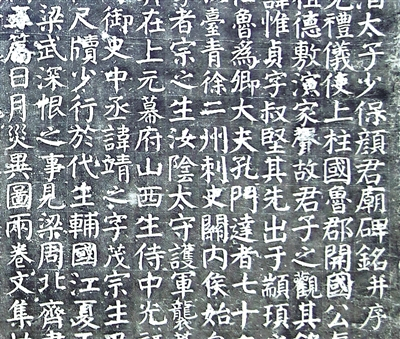 太子少保顏君廟碑銘并序
禮儀使上柱國魯郡開國公
祖德敷演家聲故君子之觀其銘
諱惟貞字叔堅其先出于顓頊
魯為卿大夫孔門達者七十
臺青徐二州刺史關內侯始自
孝者宗之生汝陰太守護軍襲
在上元幕府山西生侍中光祿
御史中丞諱靖之字茂宗生
尺牘少行於代生輔國江夏王
梁武深恨之事見梁周北齊書
篇日月災異圖兩卷文集廿